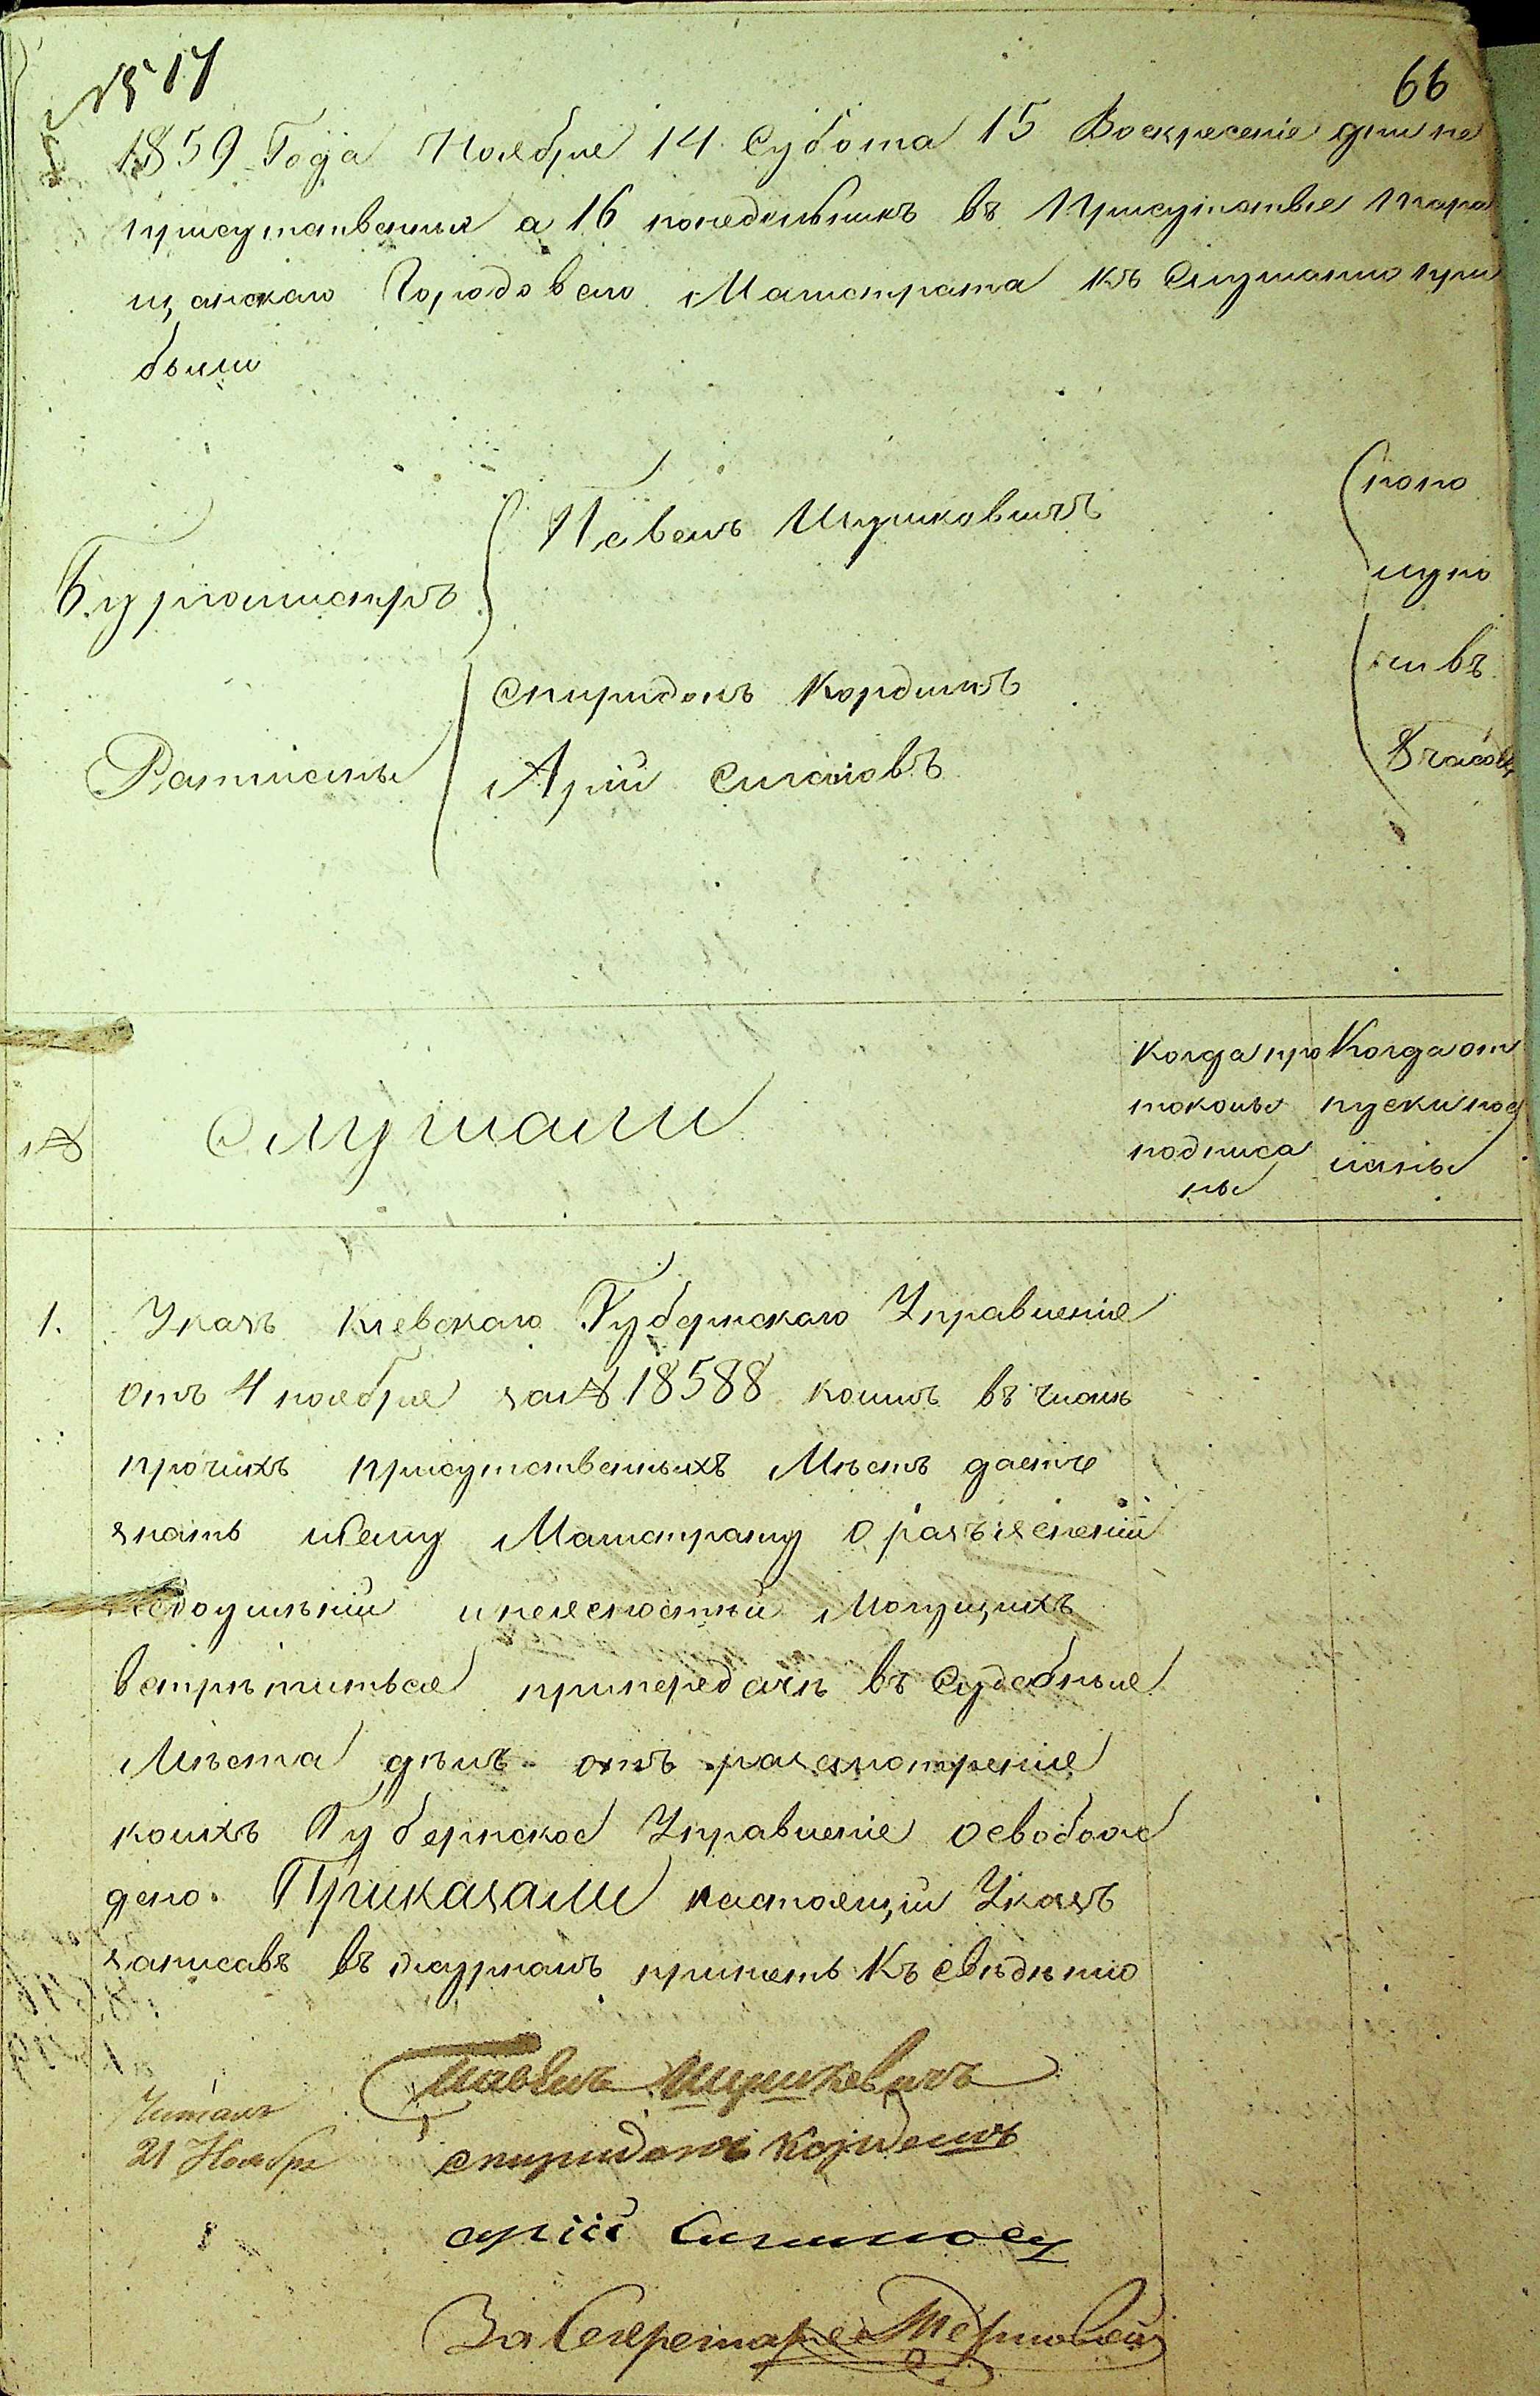 № 17
66
1859 Года Ноября 14 Субота 15 Воскресеніе дни не
присутвенныя а 16 понедельникъ въ Присутствіе Тара
щанскаго Городоваго Магистрата къ Слушанію при
были
Бургомистръ
Павелъ
попо
лупо
Ратманы
Спиридонъ Кордишъ
Арій
ни въ
8 часовъ
№
Слушали
Когда про
токолы
подписа
ны
Когда от
пуски пос
ланы
1.
Указъ Кіевскаго Губернскаго Управленія
отъ 4 ноября за № 18588 коимъ въ числѣ
прочихъ присутственныхъ Мѣстъ даетъ
знать и сему Магистрату о разъясненіи
недоумѣній и неясностей Могущихъ
встрѣтиться при передачѣ въ Судебныя
Мѣста дѣлъ отъ разсмотренія
коихъ Губернское Управленіе освобож
дено. Приказали настоящій Указъ
записавъ въ журналъ принять къ свѣдѣнію
Читалъ
21 Ноября
Павелъ
спиридонъ
арій
За Секретаря